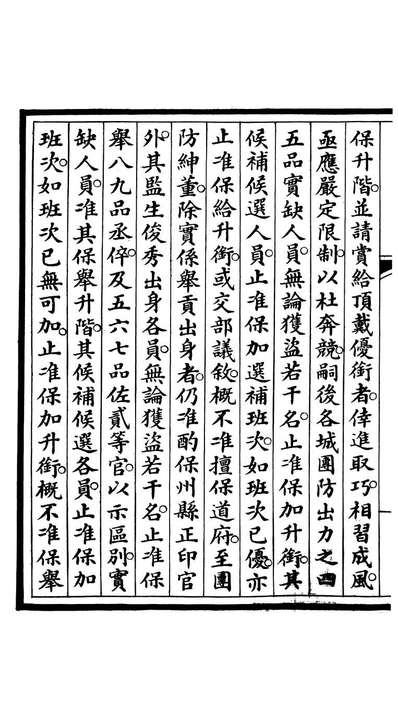 保升階。並請賞給頂戴優銜者。倖進取巧。相習成風。
亟應嚴定限制。以杜奔競。嗣後各城團防出力之四
五品實缺人員。無論獲盜若干名。止准保加升銜。其
候補候選人員。止准保加選補班次。如班次已優。亦
止准保給升銜。或交部議敘。概不准擅保道府。至團
防紳董。除實係舉貢出身者。仍准酌保州縣正印官
外。其監生俊秀出身各員。無論獲盜若干名。止准保
舉八九品丞倅。及五六七品佐貳等官。以示區別。實
缺人員。准其保舉升階。其候補候選各員。止准保加
班次。如班次已無可加。止准保加升銜。概不准保舉